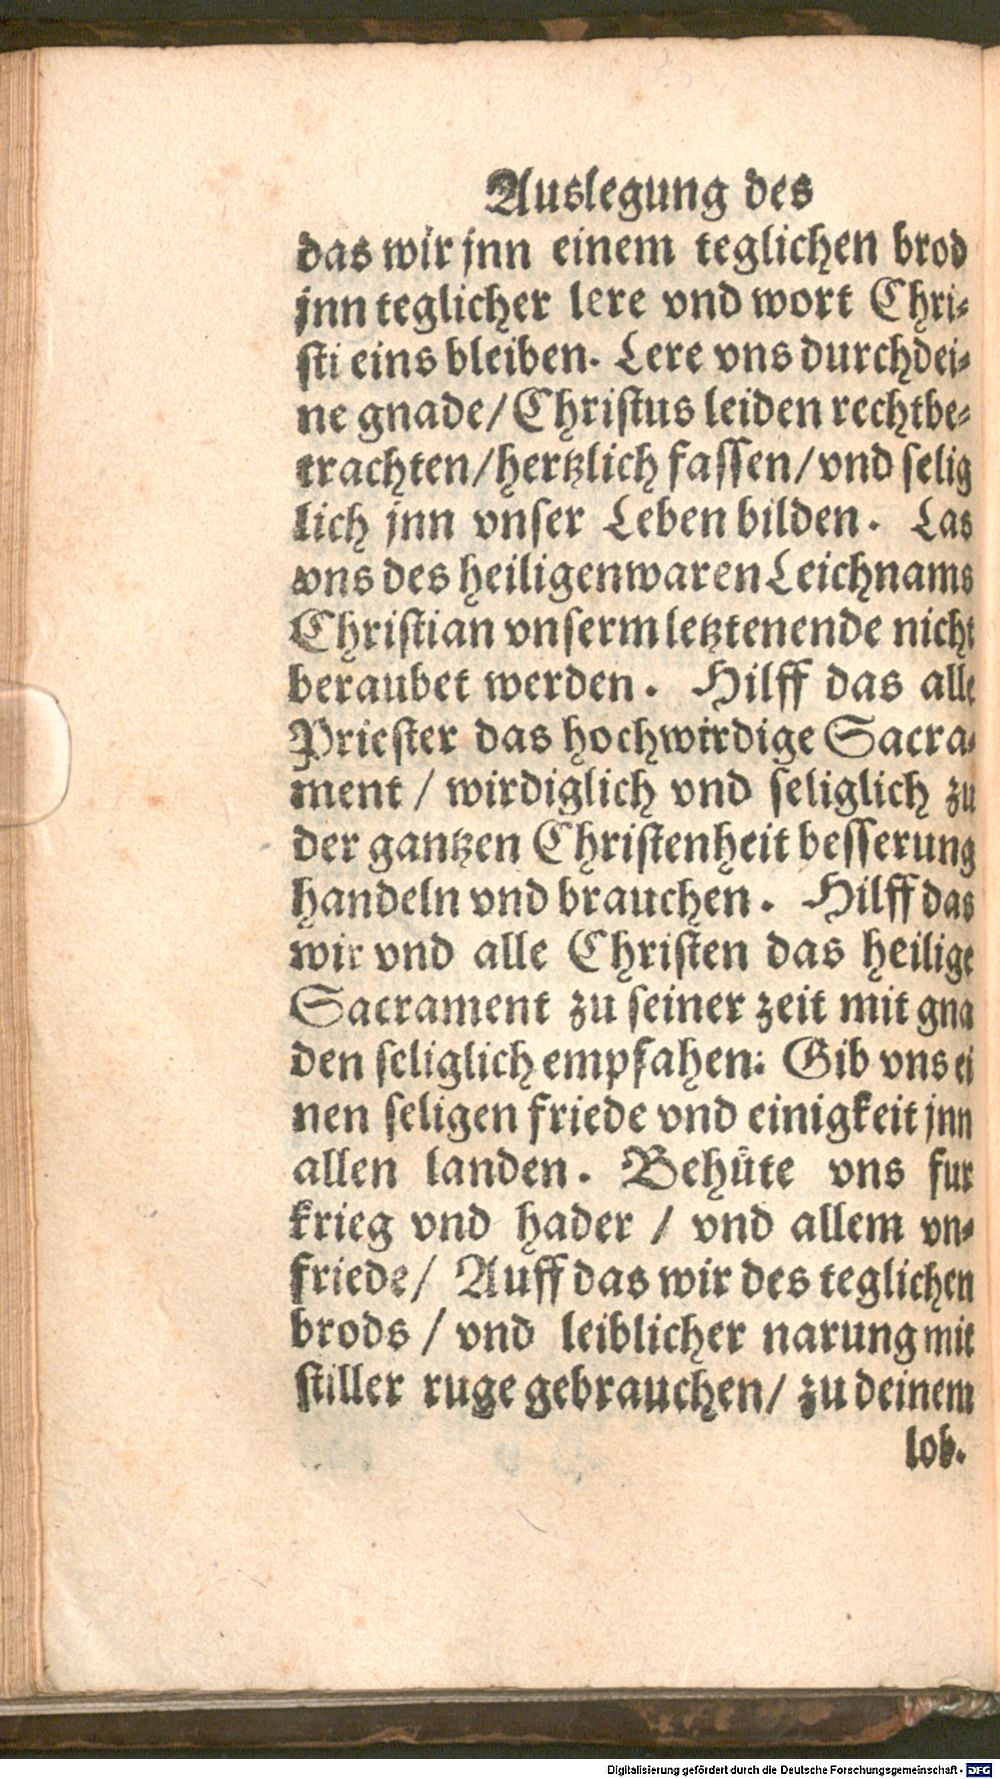 Auslegung des
das wir jnn einem teglichen brod
jnn teglicher lere vnd wort Chri⸗
sti eins bleiben. Lere vns durch dei⸗
ne gnade/ Christus leiden recht be⸗
trachten/ hertzlich fassen/ vnd selig
lich jnn vnser Leben bilden. Las
vns des heiligen waren Leichnams
Christi an vnserm letzten ende nicht
beraubet werden. Hilff das alle
Priester das hochwirdige Sacra⸗
ment / wirdiglich vnd seliglich zu
der gantzen Christenheit besserung
handeln vnd brauchen. Hilff das
wir vnd alle Christen das heilige
Sacrament zu seiner zeit mit gna
den seliglich empfahen: Gib vns ei
nen seligen friede vnd einigkeit jnn
allen landen. Behüte vns fur
krieg vnd hader / vnd allem vn⸗
friede/ Auff das wir des teglichen
brods / vnd leiblicher narung mit
stiller ruge gebrauchen/ zu deinem
lob.
Digitalisierung gefördert durch die Deutsche Forschungsgemeinschaft - DFG